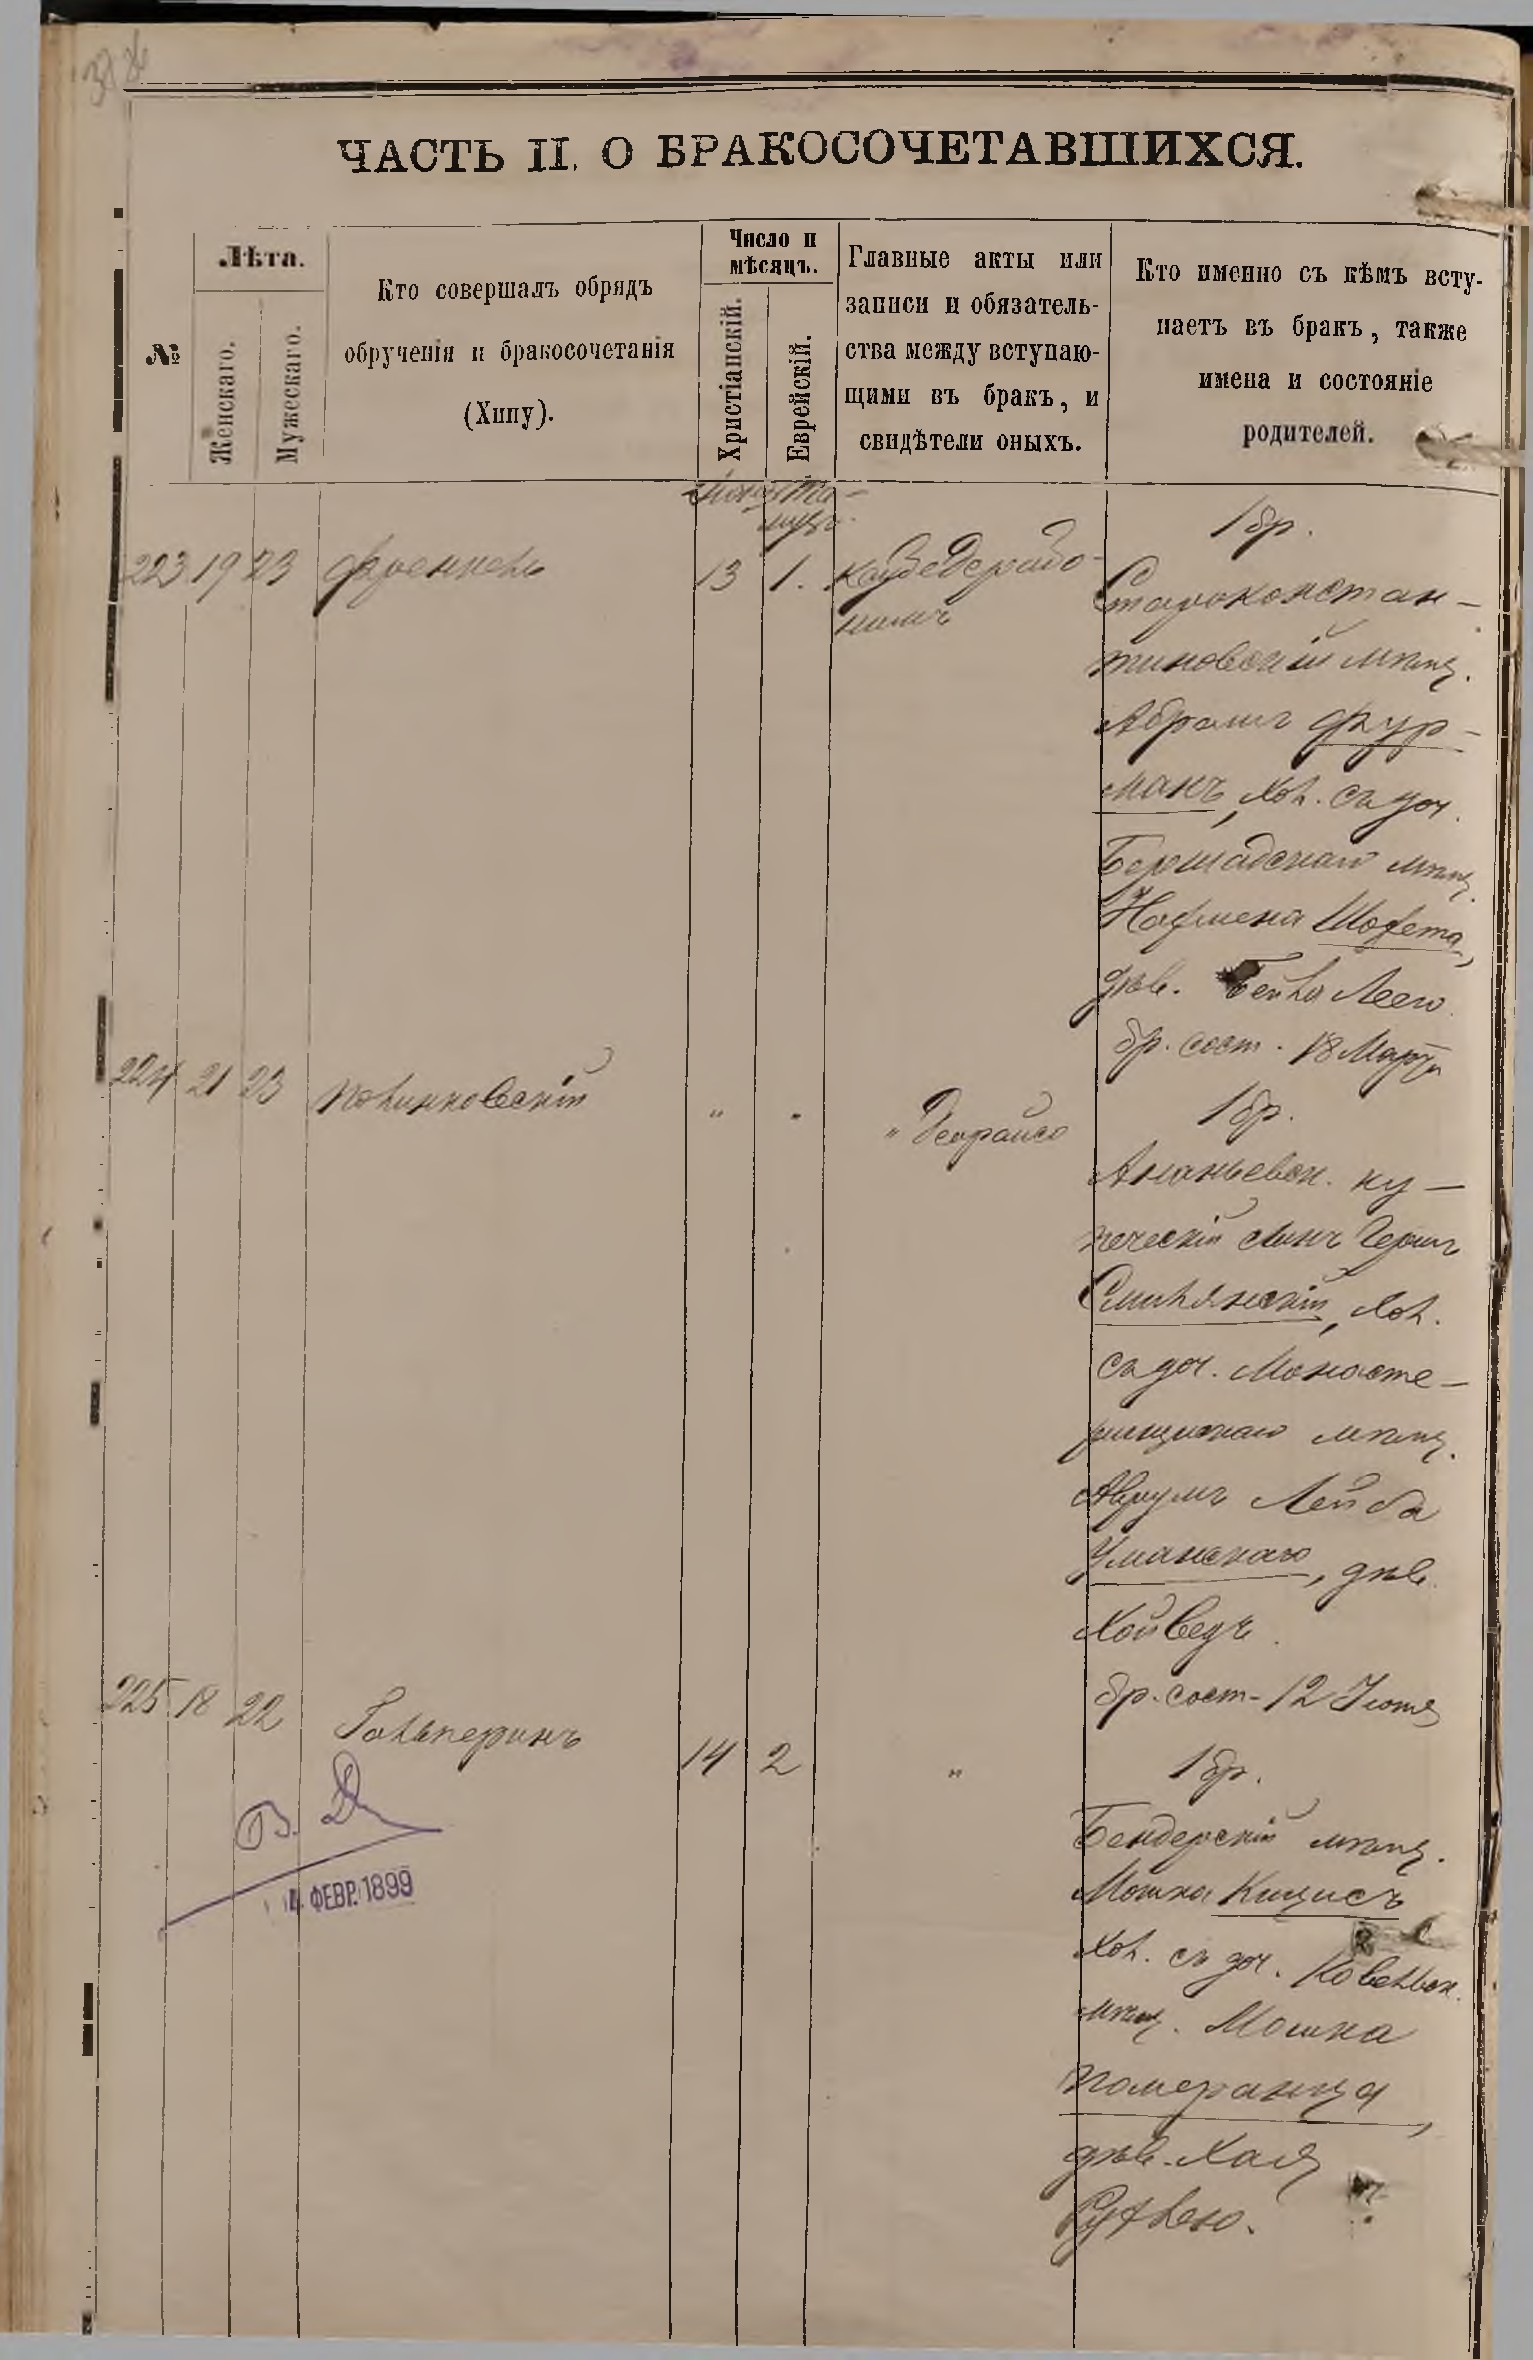 ЧАСТЬ II. О БРАКОСОЧЕТАВШИХСЯ.
№
Лѣта.
Женскаго.
Мужескаго.
Кто совершалъ обрядъ
обрученія и бракосочетанія
(Хипу).
Число и
мѣсяцъ.
Христіанскій.
Еврейскій.
Главные акты или
записи и обязатель-
ства между вступаю-
щими въ бракъ, и
свидѣтели оныхъ.
Кто именно съ кѣмъ всту-
паетъ въ бракъ, также
имена и состояніе
родителей.
223 19 23 Френкель 13 1.
1 бр.
Староконстан-
тиновскій мѣщ.
Абрамъ Фур-
манъ, хол. съ доч.
Бершадскаго мѣщ.
дѣв. Бейла Леею
бр. сост. 18 Марта
224 21 23 Полинковскій " "
1 бр.
Ананьевск. ку-
печескій сынъ Герш
Смилянскій, хол.
съ доч. Монасте-
рищскаго мѣщ.
Аврумъ Лейба
Уманскаго, дѣв.
Хойведъ.
бр. сост. 12 Іюня
225 18 22 Гальперинъ 14 2 "
1 бр.
Бендерскій мѣщ.
Мошка Кицисъ
хол. съ доч. Ковельск.
мѣщ. Мошка
Померанца,
дѣв. Хая
Рухлею.
4 ФЕВР. 1899